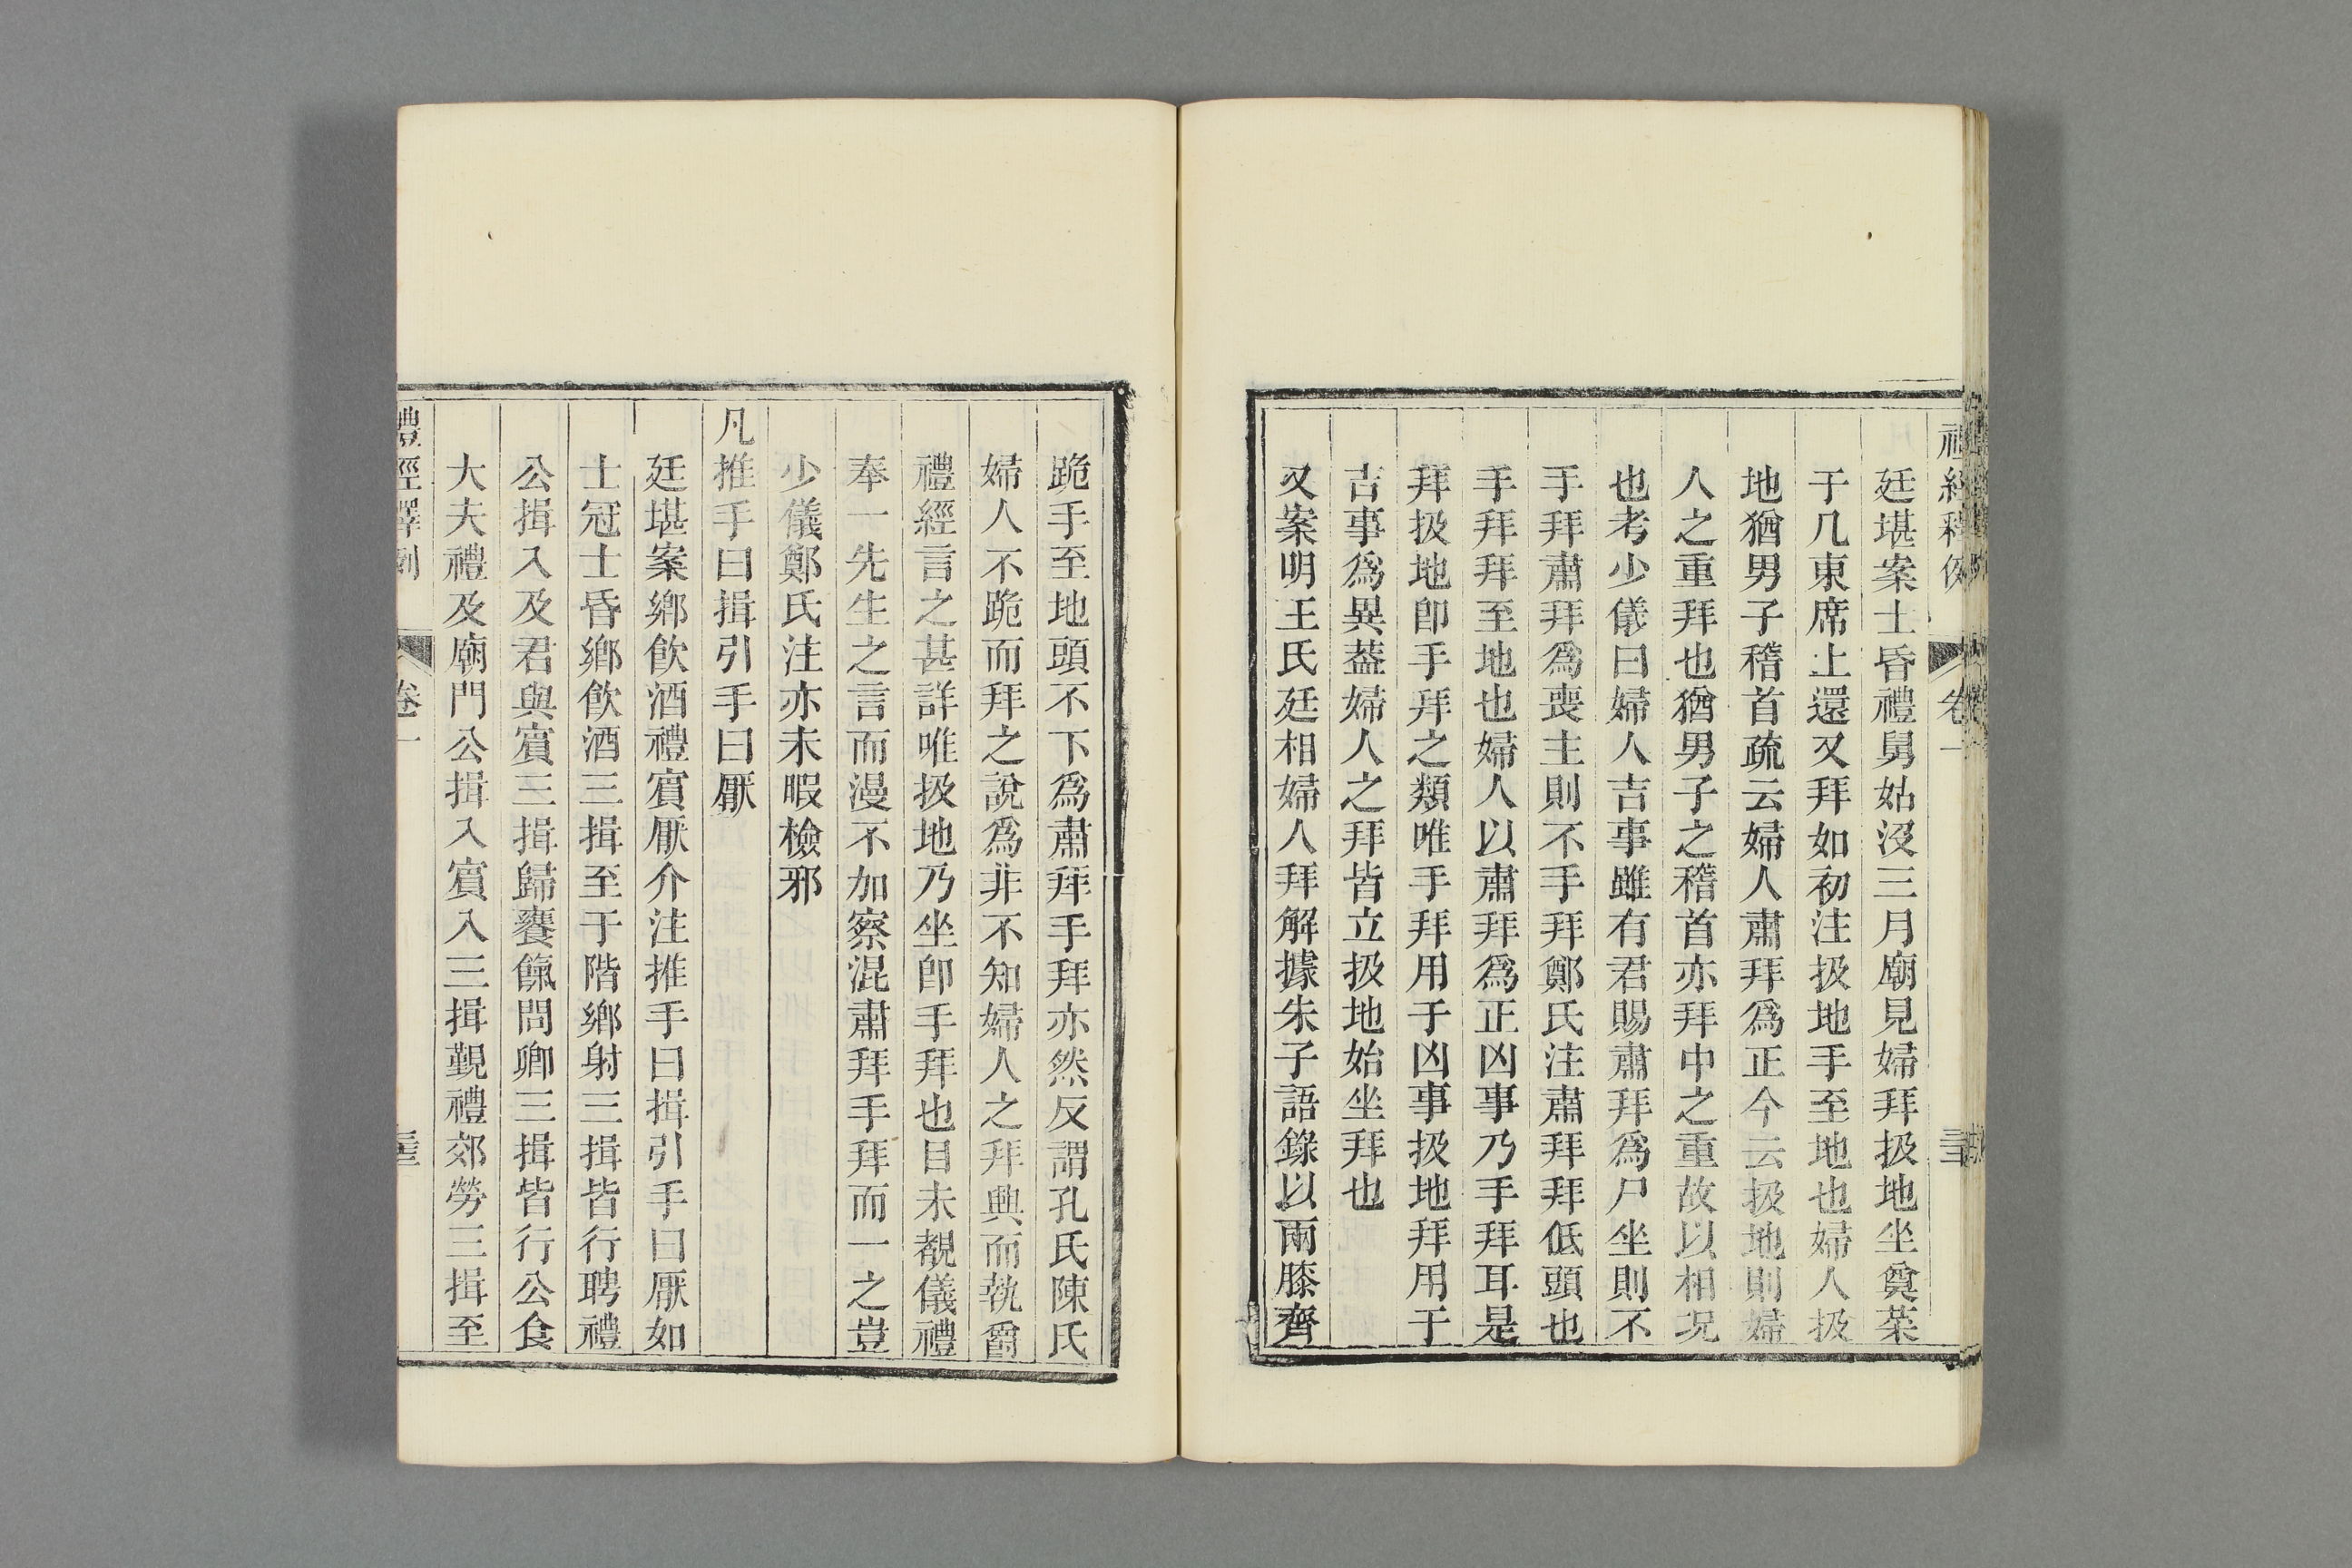 禮經釋例 卷一
廷堪案士昏禮舅姑沒三月廟見婦拜扱地坐奠菜
于几東席上還又拜如初注扱地手至地也婦人扱
地猶男子稽首疏云婦人肅拜爲正今云扱地則婦
人之重拜也猶男子之稽首亦拜中之重故以相況
也考少儀曰婦人吉事雖有君賜肅拜爲尸坐則不
手拜肅拜爲喪主則不手拜鄭氏注肅拜拜低頭也
手拜拜至地也婦人以肅拜爲正凶事乃手拜耳是
拜扱地卽手拜之類唯手拜用于凶事扱地拜用于
吉事爲異葢婦人之拜皆立扱地始坐拜也
又案明王氏廷相婦人拜解據朱子語錄以兩膝齊
跪手至地頭不下爲肅拜手拜亦然反謂孔氏陳氏
婦人不跪而拜之說爲非不知婦人之拜興而執爵
禮經言之甚詳唯扱地乃坐卽手拜也目未覩儀禮
奉一先生之言而漫不加察混肅拜手拜而一之豈
少儀鄭氏注亦未暇檢邪
凡推手曰揖引手曰厭
廷堪案鄉飮酒禮賓厭介注推手曰揖引手曰厭如
士冠士昏鄉飮酒三揖至于階鄉射三揖皆行聘禮
公揖入及君與賓三揖歸饔餼問卿三揖皆行公食
大夫禮及廟門公揖入賓入三揖覲禮郊勞三揖至
禮經釋例 卷一